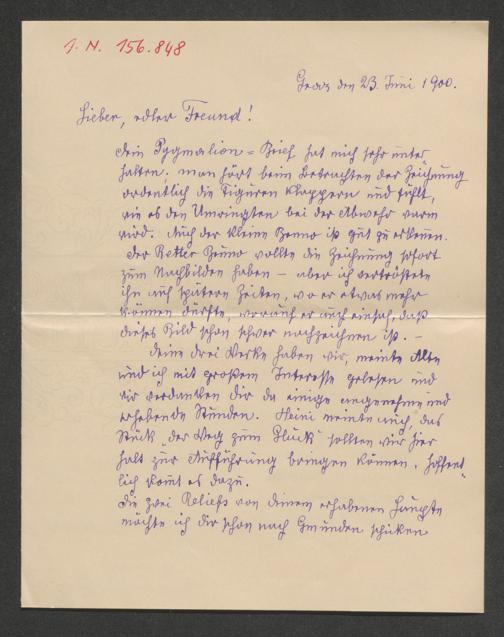 J. N. 156.848
Graz den 23. Juni 1900.
Lieber, edler Freund!
Dein Pygmalion-Brief hat mich sehr unter
halten; man hört beim Betrachten der Zeichnung
ordentlich die Figuren klappern und fühlt,
wie es den Umringten bei der Abwehr warm
wird. Auch der kleine Benno ist gut zu erkennen.
Der Benno wollte die Zeichnung sofort
zum Nachbilden haben – aber ich vertröstete
ihn auf spätere Zeiten, wo er etwas mehr
können dürfte, worauf er auch einsah, daß
dieses Bild schon schwer nachzeichnen ist. –
Deine drei Werke haben wir, meine Alte
und ich mit großem Interesse gelesen und
wir verdanken Dir da einige angenehme und
erhebende Stunden. Heini meinte auch, das
Stück „der Weg zum Glück" sollten wir hier
halt zur Aufführung bringen können. Hoffent-
lich kommt es dazu.
Die zwei Reliefs von Deinem erhabenen Haupte
möchte ich Dir schon nach Gmunden schicken